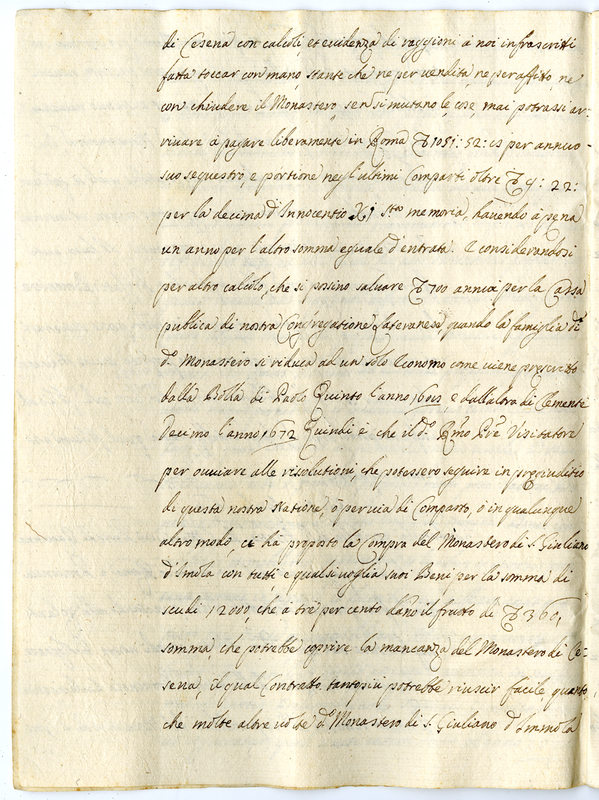 di Cesena con calcoli, et evidenza di raggioni à noi infrascritti
fatta toccar con mano, stante che ne per vendita, ne per affitto, ne
con chiudere il Monastero, se nō si mutano le cose, mai potrassi ar-
rivare à pagare liberamente in Roma ∇ 1051: 52: per annuo
suo sequestro, e portione negl'ultimi Comparti oltre ∇ 9: 22:
per la decima d'Innocentio XI sta memoria, havendo à pena
un anno per l'altro somma eguale d'entrata. E considerandosi
per altro calcolo, che si possino salvare ∇ 700 annui per la Cassa
publica di nostra Congregatione Lateranese, quando la famiglia di
do Monastero si riduca ad un solo Economo come viene prescritto
dalla Bolla di Paolo Quinto l'anno, e dall'altra di Clemente
Decimo l'anno 1672 Quindi è che il do Rmo Pre Visitatore
per ovviare alle risolutioni, che potessero seguire in pregiuditio
di questa nostra Natione, ò per via di Comparto, ò in qualunque
altro modo, ci hà proposto la Compra del Monastero di S. Giuliano
d'Imola con tutti, e qualsivoglia suoi Beni per la somma di
scudi 12000, che à trè per cento dāno il frutto di ∇ 360,
somma, che potrebbe coprire la mancanza del Monastero di Ce-
sena, il qual Contratto tantopiù potrebbe riuscir facile quanto
che molte altre volte do Monastero di S. Giuliano d'Immola